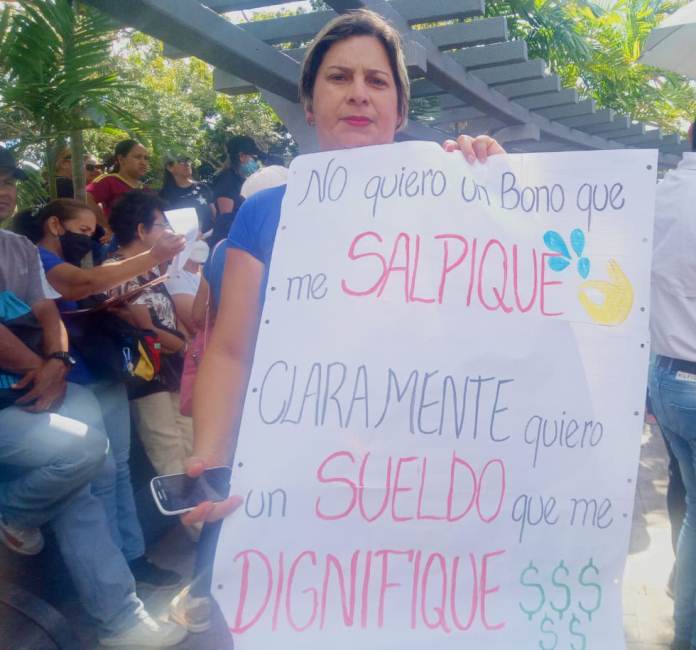 NO quiero un Bono que
me SALPIQUE
CLARAMENTE quiero
un SUELDO que me
DIGNIFIQUE $$$
$$